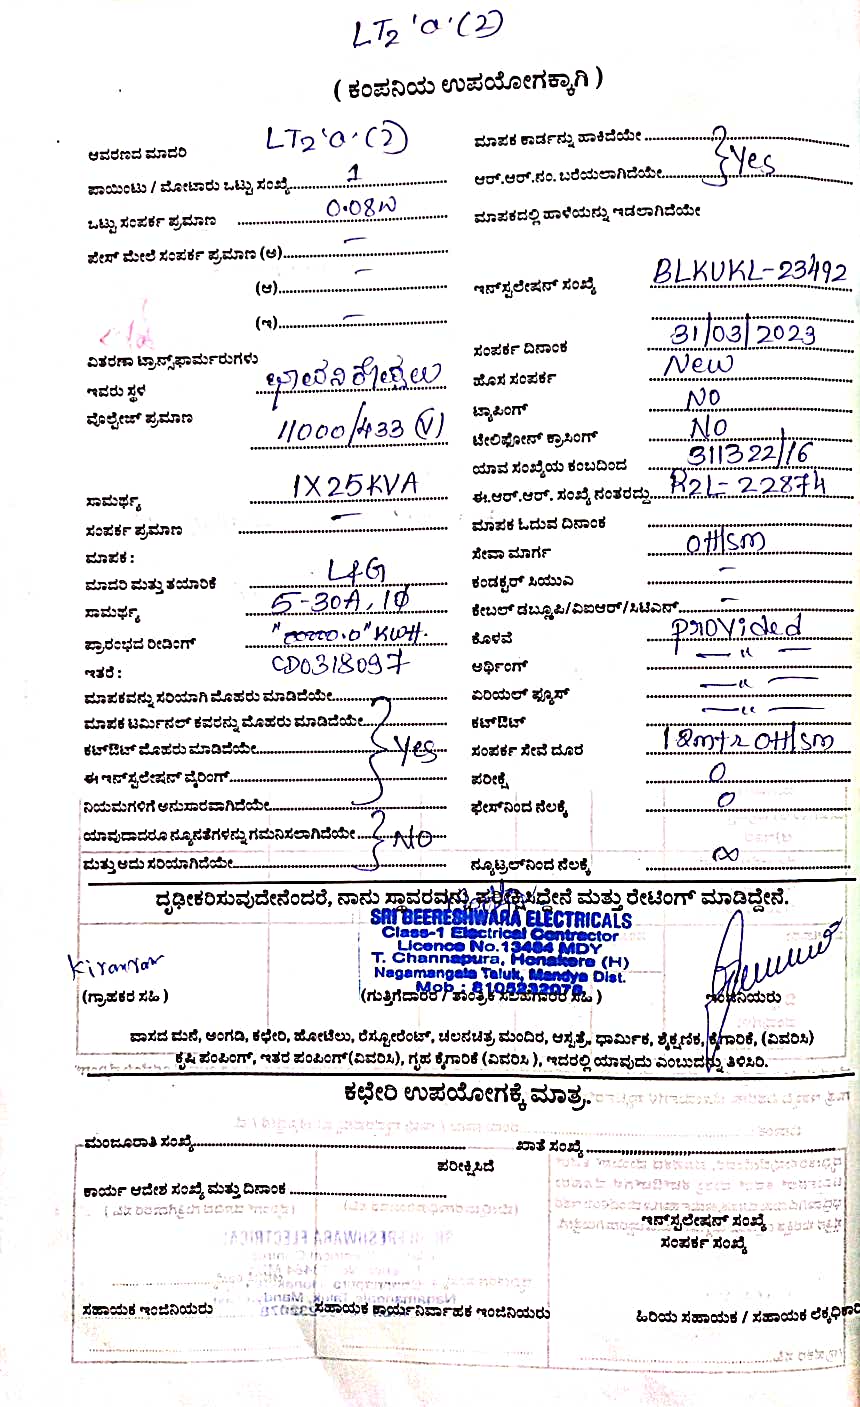 LT2 'a' (2)
( ಕಂಪನಿಯ ಉಪಯೋಗಕ್ಕಾಗಿ )
ಆವರಣದ ಮಾದರಿ LT2 'a' (2)
ಪಾಯಿಂಟು / ಮೋಟಾರು ಒಟ್ಟು ಸಂಖ್ಯೆ 1
ಒಟ್ಟು ಸಂಪರ್ಕ ಪ್ರಮಾಣ 0.08W
ಪೇಸ್ ಮೇಲೆ ಸಂಪರ್ಕ ಪ್ರಮಾಣ (ಅ) –
(ಆ) –
(ಇ) –
ವಿತರಣಾ ಟ್ರಾನ್ಸ್‌ಫಾರ್ಮರುಗಳು
ಇವರು ಸ್ಥಳ
ವೊಲ್ಟೇಜ್ ಪ್ರಮಾಣ 11000/433 (V)
ಸಾಮರ್ಥ್ಯ 1X25KVA
ಸಂಪರ್ಕ ಪ್ರಮಾಣ –
ಮಾಪಕ :
ಮಾದರಿ ಮತ್ತು ತಯಾರಿಕೆ L&G
ಸಾಮರ್ಥ್ಯ 5-30A, 1Ø
ಪ್ರಾರಂಭದ ರೀಡಿಂಗ್ "0000.0" KWH.
ಇತರೆ : CD0318097
ಮಾಪಕವನ್ನು ಸರಿಯಾಗಿ ಮೊಹರು ಮಾಡಿದೆಯೇ
ಮಾಪಕ ಟರ್ಮಿನಲ್ ಕವರನ್ನು ಮೊಹರು ಮಾಡಿದೆಯೇ
ಕಟ್‌ಔಟ್ ಮೊಹರು ಮಾಡಿದೆಯೇ Yes
ಈ ಇನ್‌ಸ್ಟಲೇಷನ್ ವೈರಿಂಗ್
ನಿಯಮಗಳಿಗೆ ಅನುಸಾರವಾಗಿದೆಯೇ
ಯಾವುದಾದರೂ ನ್ಯೂನತೆಗಳನ್ನು ಗಮನಿಸಲಾಗಿದೆಯೇ NO
ಮತ್ತು ಅದು ಸರಿಯಾಗಿದೆಯೇ
ಮಾಪಕ ಕಾರ್ಡನ್ನು ಹಾಕಿದೆಯೇ
ಆರ್.ಆರ್.ನಂ. ಬರೆಯಲಾಗಿದೆಯೇ Yes
ಮಾಪಕದಲ್ಲಿ ಹಾಳೆಯನ್ನು ಇಡಲಾಗಿದೆಯೇ
ಇನ್‌ಸ್ಟಲೇಷನ್ ಸಂಖ್ಯೆ BLKUKL-23492
ಸಂಪರ್ಕ ದಿನಾಂಕ 31/03/2023
ಹೊಸ ಸಂಪರ್ಕ New
ಟ್ಯಾಪಿಂಗ್ NO
ಟೆಲಿಫೋನ್ ಕ್ರಾಸಿಂಗ್ NO
ಯಾವ ಸಂಖ್ಯೆಯ ಕಂಬದಿಂದ 311322/16
ಈ.ಆರ್.ಆರ್. ಸಂಖ್ಯೆ ನಂತರದ್ದು R2L-22874
ಮಾಪಕ ಓದುವ ದಿನಾಂಕ
ಸೇವಾ ಮಾರ್ಗ OH/SM
ಕಂಡಕ್ಟರ್ ಸಿಯುಎ –
ಕೇಬಲ್ ಡಬ್ಲೂಪಿ/ವಿಐಆರ್/ಸಿಟಿಎಸ್ –
ಕೊಳವೆ provided
ಅರ್ಥಿಂಗ್ — " —
ಏರಿಯಲ್ ಫ್ಯೂಸ್ — " —
ಕಟ್‌ಔಟ್ — " —
ಸಂಪರ್ಕ ಸೇವೆ ದೂರ 18mtr OH/SM
ಪರೀಕ್ಷೆ 0
ಫೇಸ್‌ನಿಂದ ನೆಲಕ್ಕೆ 0
ನ್ಯೂಟ್ರಲ್‌ನಿಂದ ನೆಲಕ್ಕೆ ∞
ದೃಢೀಕರಿಸುವುದೇನೆಂದರೆ, ನಾನು ಸ್ಥಾವರವನ್ನು ಪರೀಕ್ಷಿಸಿದ್ದೇನೆ ಮತ್ತು ರೇಟಿಂಗ್ ಮಾಡಿದ್ದೇನೆ.
SRI BEERESHWARA ELECTRICALS
Class-1 Electrical Contractor
Licence No.13484 MDY
T. Channapura, Honakere (H)
Nagamangala Taluk, Mandya Dist.
Mob : 8105232078
(ಗ್ರಾಹಕರ ಸಹಿ ) (ಗುತ್ತಿಗೆದಾರರ / ತಾಂತ್ರಿಕ ಸಲಹೆಗಾರರ ಸಹಿ ) ಇಂಜಿನಿಯರು
ವಾಸದ ಮನೆ, ಅಂಗಡಿ, ಕಛೇರಿ, ಹೋಟೆಲು, ರೆಸ್ಟೋರೆಂಟ್, ಚಲನಚಿತ್ರ ಮಂದಿರ, ಆಸ್ಪತ್ರೆ, ಧಾರ್ಮಿಕ, ಶೈಕ್ಷಣಿಕ, ಕೈಗಾರಿಕೆ, (ವಿವರಿಸಿ)
ಕೃಷಿ ಪಂಪಿಂಗ್, ಇತರ ಪಂಪಿಂಗ್(ವಿವರಿಸಿ), ಗೃಹ ಕೈಗಾರಿಕೆ (ವಿವರಿಸಿ ), ಇದರಲ್ಲಿ ಯಾವುದು ಎಂಬುದನ್ನು ತಿಳಿಸಿರಿ.
ಕಛೇರಿ ಉಪಯೋಗಕ್ಕೆ ಮಾತ್ರ.
ಮಂಜೂರಾತಿ ಸಂಖ್ಯೆ ಖಾತೆ ಸಂಖ್ಯೆ
ಪರೀಕ್ಷಿಸಿದೆ
ಕಾರ್ಯ ಆದೇಶ ಸಂಖ್ಯೆ ಮತ್ತು ದಿನಾಂಕ
ಇನ್‌ಸ್ಟಲೇಷನ್ ಸಂಖ್ಯೆ
ಸಂಪರ್ಕ ಸಂಖ್ಯೆ
ಸಹಾಯಕ ಇಂಜಿನಿಯರು ಸಹಾಯಕ ಕಾರ್ಯನಿರ್ವಾಹಕ ಇಂಜಿನಿಯರು ಹಿರಿಯ ಸಹಾಯಕ / ಸಹಾಯಕ ಲೆಕ್ಕಾಧಿಕಾರಿ